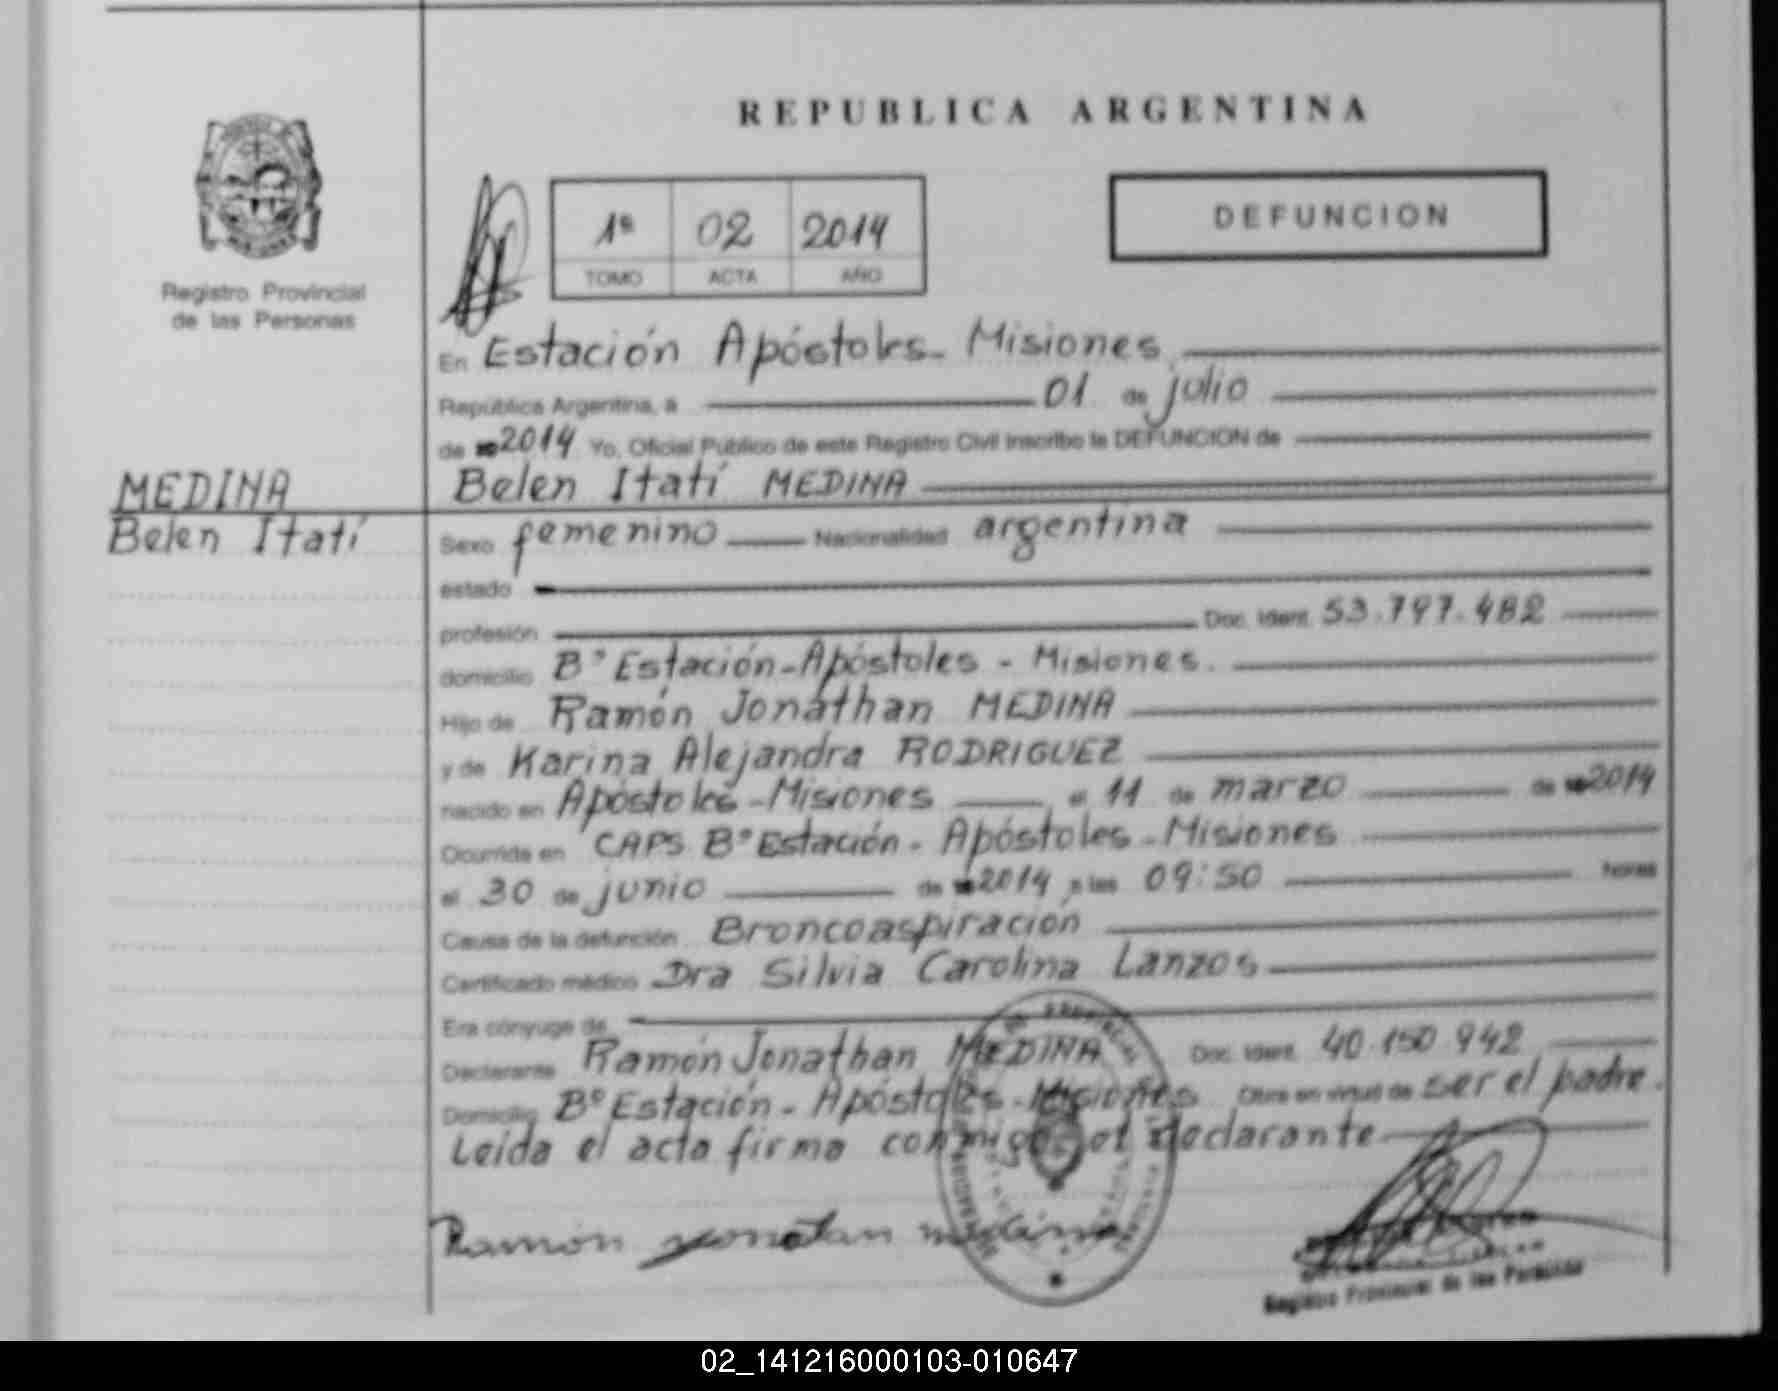 REPUBLICA ARGENTINA
1º 02 2014
TOMO ACTA AÑO
DEFUNCION
Registro Provincial
de las Personas
En Estación Apóstoles - Misiones
República Argentina, a 01 de julio
de 2014 Yo, Oficial Público de este Registro Civil inscribo la DEFUNCION de
MEDINA
Belen Itatí
Belen Itatí MEDINA
Sexo femenino Nacionalidad argentina
estado
profesión Doc. Ident. 53.797.482
domicilio Bº Estación - Apóstoles - Misiones.
Hijo de Ramón Jonathan MEDINA
y de Karina Alejandra RODRIGUEZ
nacido en Apóstoles - Misiones el 11 de marzo de 2014
Ocurrida en CAPS Bº Estación - Apóstoles - Misiones
el 30 de junio de 2014 a las 09:50 horas
Causa de la defunción Broncoaspiración
Certificado médico Dra Silvia Carolina Lanzos
Era cónyuge de
Declarante Ramón Jonathan MEDINA Doc. Ident. 40.150.942
Domicilio Bº Estación - Apóstoles - Misiones Obra en virtud de ser el padre.
Leida el acta firma conmigo el declarante
Ramón yonatan medina
Registro Provincial de las Personas
02_141216000103-010647